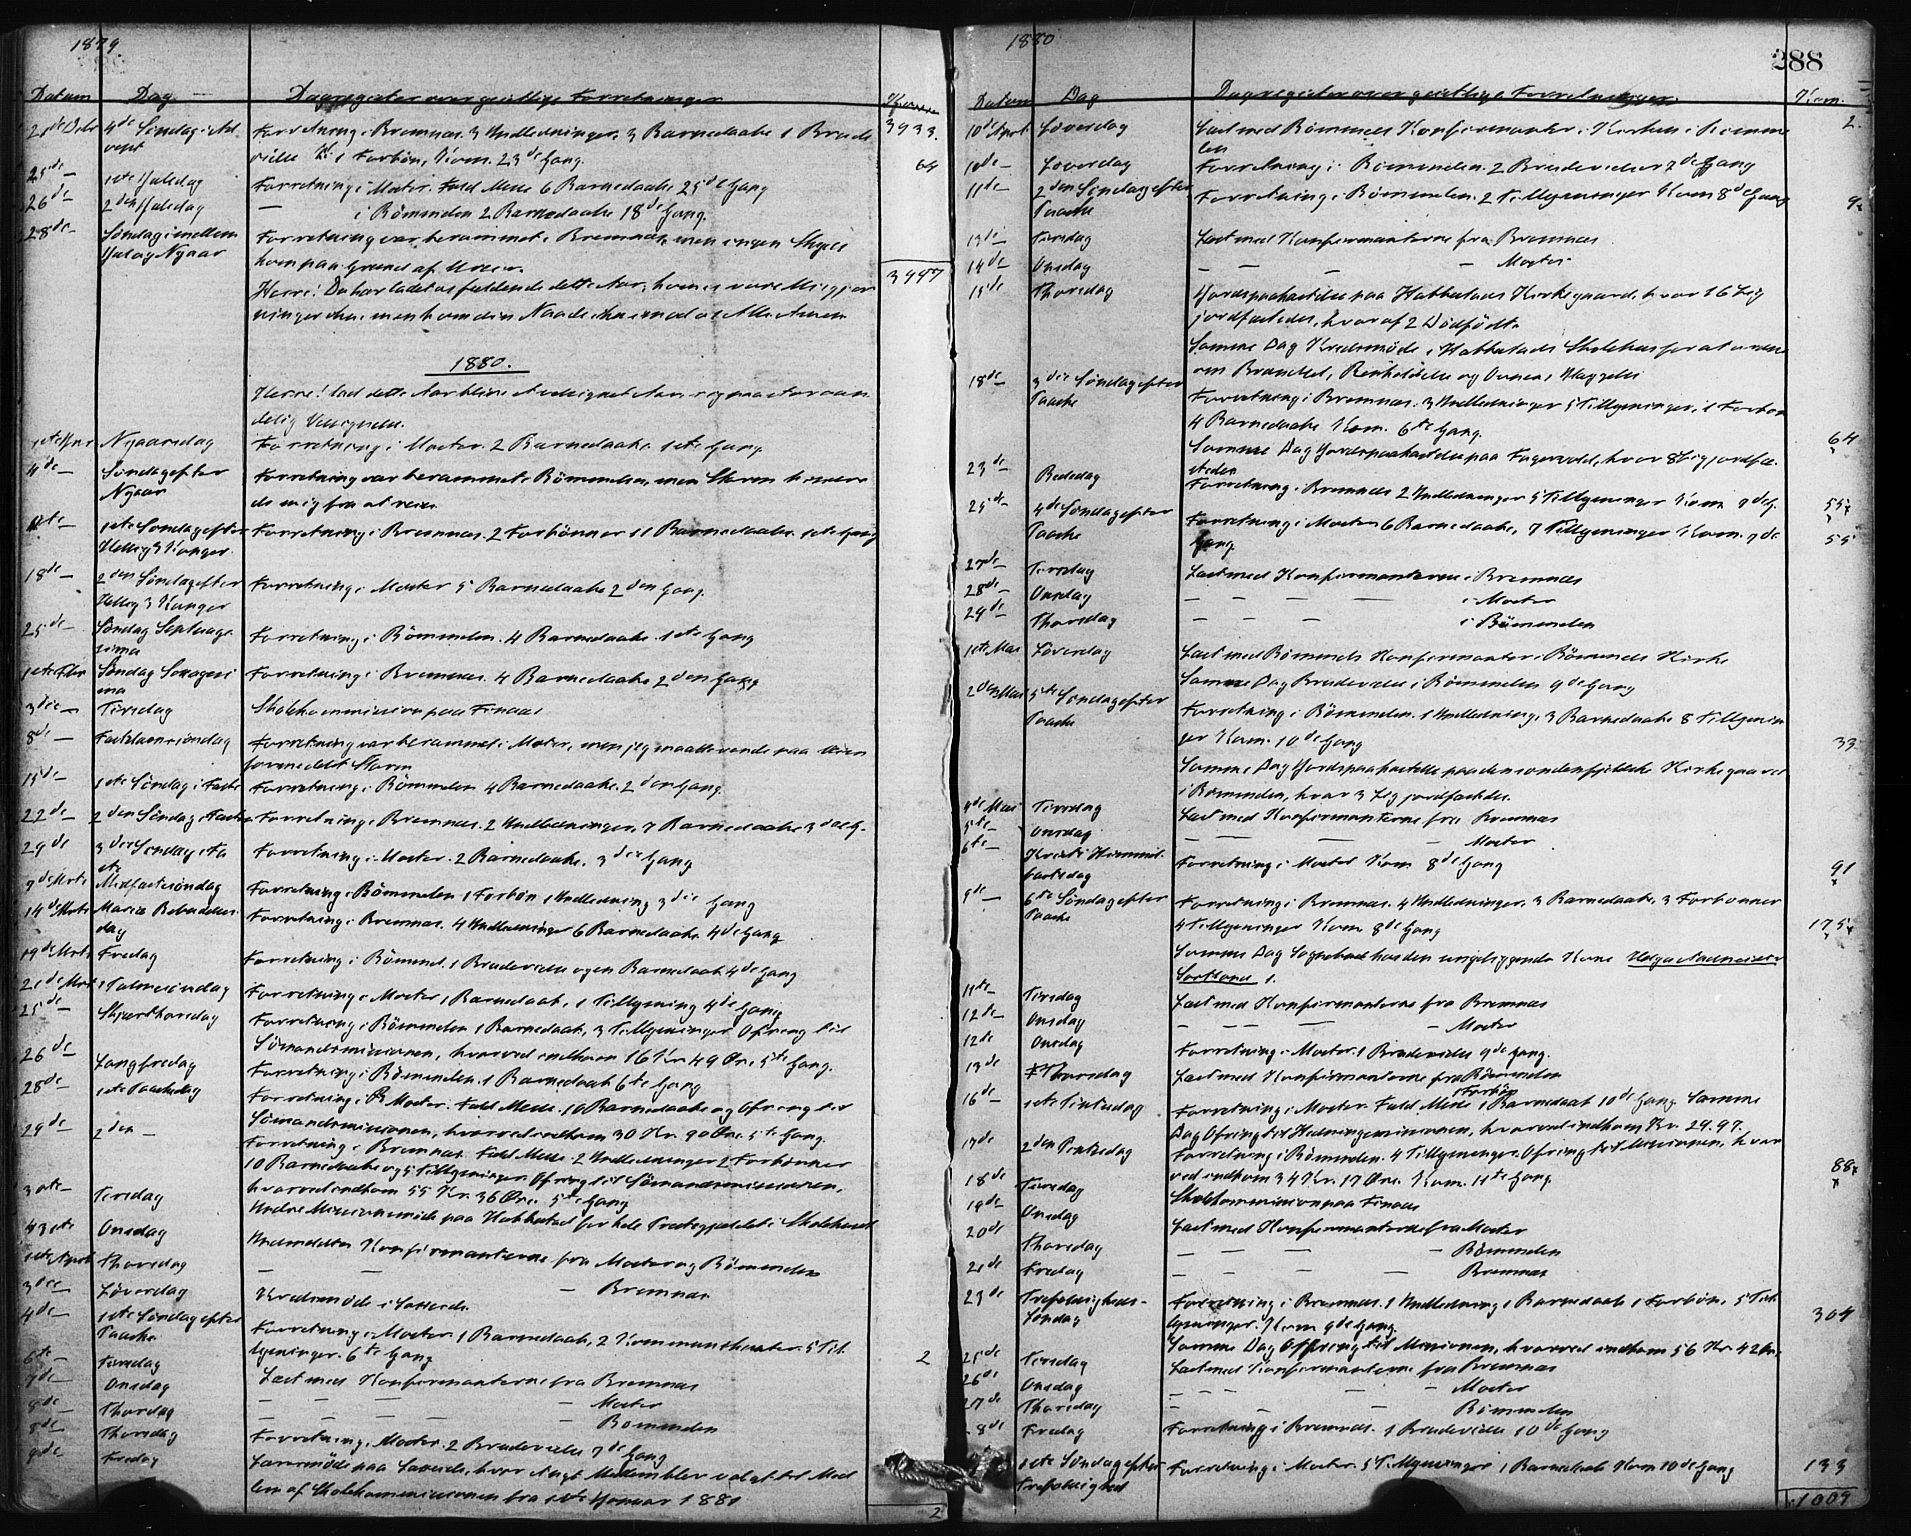 1879.
Datum Dag Dagregister over geistlige Forretninger Kom.
21de Debr 4de Søndag i Ad Forretning i Bremnæs. 3 Indledninger, 3 Barnedaab 1 Brude 3933.
vent vielse 1 Forbøn, Kom. 23de Gang. 64
25de — 1ste Juledag Forretning i Moster. Fuld Messe 6 Barnedaab 25de Gang
26de — 2den Juledag — i Bømmelen 2 Barnedaab 18de Gang.
28de — Søndag imellem Forretning var berammet i Bremnæs, men ingen Skyds
Jul og Nyaar kom paa Grund af 3997
Herre! Du har ladet os fuldende dette Aar,
ninger men kom din Naade Amen
1880.
Herre! lad dette Aar blive et velsignet Aar
delig Velsignelse.
1ste Jnr Nyaarsdag Forretning i Moster. 2 Barnedaab. 1ste Gang
4de — Søndag efter Forretning var berammet i Bømmelen, men Storm hindre
Nyaar de mig fra at reise.
11te — 1ste Søndag efter Forretning i Bremnæs. 2 Forbønner 11 Barnedaab. 1ste Gang
Hellig 3 Konger
18de — 2den Søndag efter Forretning i Moster 5 Barnedaab 2den Gang.
Hellig 3 Konger
25de — Søndag Septuage Forretning i Bømmelen. 4 Barnedaab. 1ste Gang
sima
1ste Febr Søndag Sexagesi Forretning i Bremnæs. 4 Barnedaab 2den Gang
ma
3die — Tirsdag Skolekommission paa Finaas
8de — Fastelavnssøndag Forretning var berammet i Moster, men jeg maatte vende paa Veien
formedelst Storm
15de — 1ste Søndag i Faste Forretning i Bømmelen 4 Barnedaab. 2den Gang.
22de — 2den Søndag i Faste Forretning i Bremnæs. 2 Indledninger, 7 Barnedaab 3die G.
29de 3die Søndag i Fa Forretning i Moster. 2 Barnedaab. 3die Gang
ste
7de Mrts Midfastesøndag Forretning i Bømmelen 1 Forbøn 1 Indledning 3die Gang
14de Mrts Mariæ Bebudelses Forretning i Bremnæs. 4 Indledninger 6 Barnedaab. 4de Gang
dag
19de Mrts Fredag Forretning i Bømmel. 1 Brudevielse og en Barnedaab 4de Gang
21de Mrts Palmesøndag Forretning i Moster 1 Barnedaab, 1 Tillysning 4de Gang
25de Skjærthorsdag Forretning i Bømmelen 1 Barnedaab, 3 Tillysninger Ofring til
Sømandsmissionen, hvorved indkom 16 Kr 49 Øre. 5te Gang.
26de Langfredag Forretning i Bømmelen. 1 Barnedaab 6te Gang
28de — 1ste Paaskedag Forretning i Moster. Fuld Messe. 10 Barnedaab og Ofring til
Sømandsmissionen, hvorved indkom 30 Kr. 90 Øre. 5te Gang.
29de — 2den — Forretning i Bremnæs. Fuld Messe. 2 Indledninger 2 Forbønner
10 Barnedaab og 5 Tillysninger. Ofring til Sømandsmissionen,
hvorved indkom 55 Kr. 36 Øre. 5te Gang
30te — Tirsdag Indre Missionsmøde paa Habbestad for hele Præstegjældet i Skolehuset
31te Onsdag Indmeldtes Konfirmanterne fra Moster og Bømmelen
1ste April Thorsdag — — — Bremnæs
3die — Løverdag Kredsmøde i
4de — 1ste Søndag efter Forretning i Moster. 1 Barnedaab, 2 Kommunikanter. 5 Til
Paaske lysninger. 6te Gang 2
6te — Tirsdag Læst med Konfirmanterne fra Bremnæs
7de — Onsdag — — — Moster
8de — Thorsdag — — — Bømmelen
8de — Thorsdag Forretning i Moster. 2 Brudevielser 7de Gang
9de Fredag paa hvor valgt til Med
lem af Skolekommissionen fra 1ste Januar 1881 2
1880
288
Datum Dag Dagregister over geistlige Forretninger. Kom.
10de April Løverdag Læst med Bømmels Konfirmanter i Kirken i Bømme 2
len
10de — Løverdag Forretning i Bømmelen. 2 Brudevielser 7de Gang
11te — 2den Søndag efter Forretning i Bømmelen. 2 Tillysninger Kom 8de Gang
Paaske
13de Tirsdag Læst med Konfirmanterne fra Bremnæs
14de Onsdag — — — — Moster
15de Thorsdag Jordspaakastelse paa Habbestads Kirkegaard, hvor 16 Lig
jordfæstedes, hvoraf 2 Dødfødte
Samme Dag Kredsmøde i Habbestads Skolehus for at ordne
om Brændsel, Renholdelse og
18de 3die Søndag efter Forretning i Bremnæs. 3 Indledninger 5 Tillysninger, 1 Forbøn
Paaske 4 Barnedaab Kom. 6te Gang. 64
Samme Dag Jordspaakastelse paa hvor 8 Lig jordfæ
stedes
23de — Bededag Forretning i Bremnæs 2 Indledninger 5 Tillysninger Kom 7de G.
25de 4de Søndag efter Forretning i Moster 6 Barnedaab, 7 Tillysninger Kom. 7de 55
Paaske Gang
27de — Tirsdag Læst med Konfirmanterne i Bremnæs
28de — Onsdag — — — — i Moster
29de Thorsdag — — — i Bømmelen
1ste Mai Løverdag Læst med Bømmels Konfirmanter i Bømmels Kirke
Samme Dag Brudevielse i Bømmelen 9de Gang
2den Mai 5te Søndag efter Forretning i Bømmelen. 1 Indledning, 3 Barnedaab 8 Tillysnin
Paaske ger Kom. 10de Gang 33
Samme Dag Jordspaakastelse paa den søndenfjeldske Kirkegaard
i Bømmelen, hvor 3 Lig jordfæstedes.
4de Mai Tirsdag Læst med Konfirmanterne fra Bremnæs
5te — Onsdag — — — — Moster
6te — Kristi Himmel Forretning i Moster Kom 8de Gang 91
fartsdag
9de — 6te Søndag efter Forretning i Bremnæs. 4 Indledninger. 3 Barnedaab, 3 Forbønner
Paaske 4 Tillysninger Kom 8de Gang 175
Samme Dag Sognebud hos den sengeliggende Kone
1.
11te — Tirsdag Læst med Konfirmanterne fra Bremnæs
12te — Onsdag — — — — Moster
12te Onsdag Forretning i Moster. 1 Brudevielse 9de Gang.
13de Thorsdag Læst med Konfirmanterne fra Bømmelen
1 Forbøn
16de — 1ste Pintsedag Forretning i Moster. Fuld Messe 1 Barnedaab 10de Gang. Samme
Dag Ofring til Hedningemissionen, hvorved indkom Kr. 29.97.
17de 2den Pintsedag Forretning i Bømmelen. 4 Tillysninger. Ofring til Missionen, hvor
ved indkom 34 Kr. 17 Øre. Kom. 11te Gang. 88
18de Tirsdag Skolekommission paa Finaas
19de — Onsdag Læst med Konfirmanterne fra Moster
20de Thorsdag — — — — Bømmelen
21de Fredag — — — — Bremnæs
23de Trefoldigheds- Forretning i Bremnæs. 1 Indledning 1 Barnedaab 1 Forbøn. 5 Til
Søndag lysninger. Kom 9de Gang 304
Samme Dag Offring til Missionen, hvorved indkom 56 Kr 42 Øre.
25de Tirsdag Læst med Konfirmanterne fra Bremnæs
26de Onsdag — — — — Moster
27de Thorsdag — — — Bømmelen
28de Fredag Forretning i Bremnæs. 1 Brudevielse 10de Gang
1ste Søndag efter Forretning i Moster. 5 Tillysninger 1 Barnedaab Kom 10de Gang 133
Trefoldighed 1009